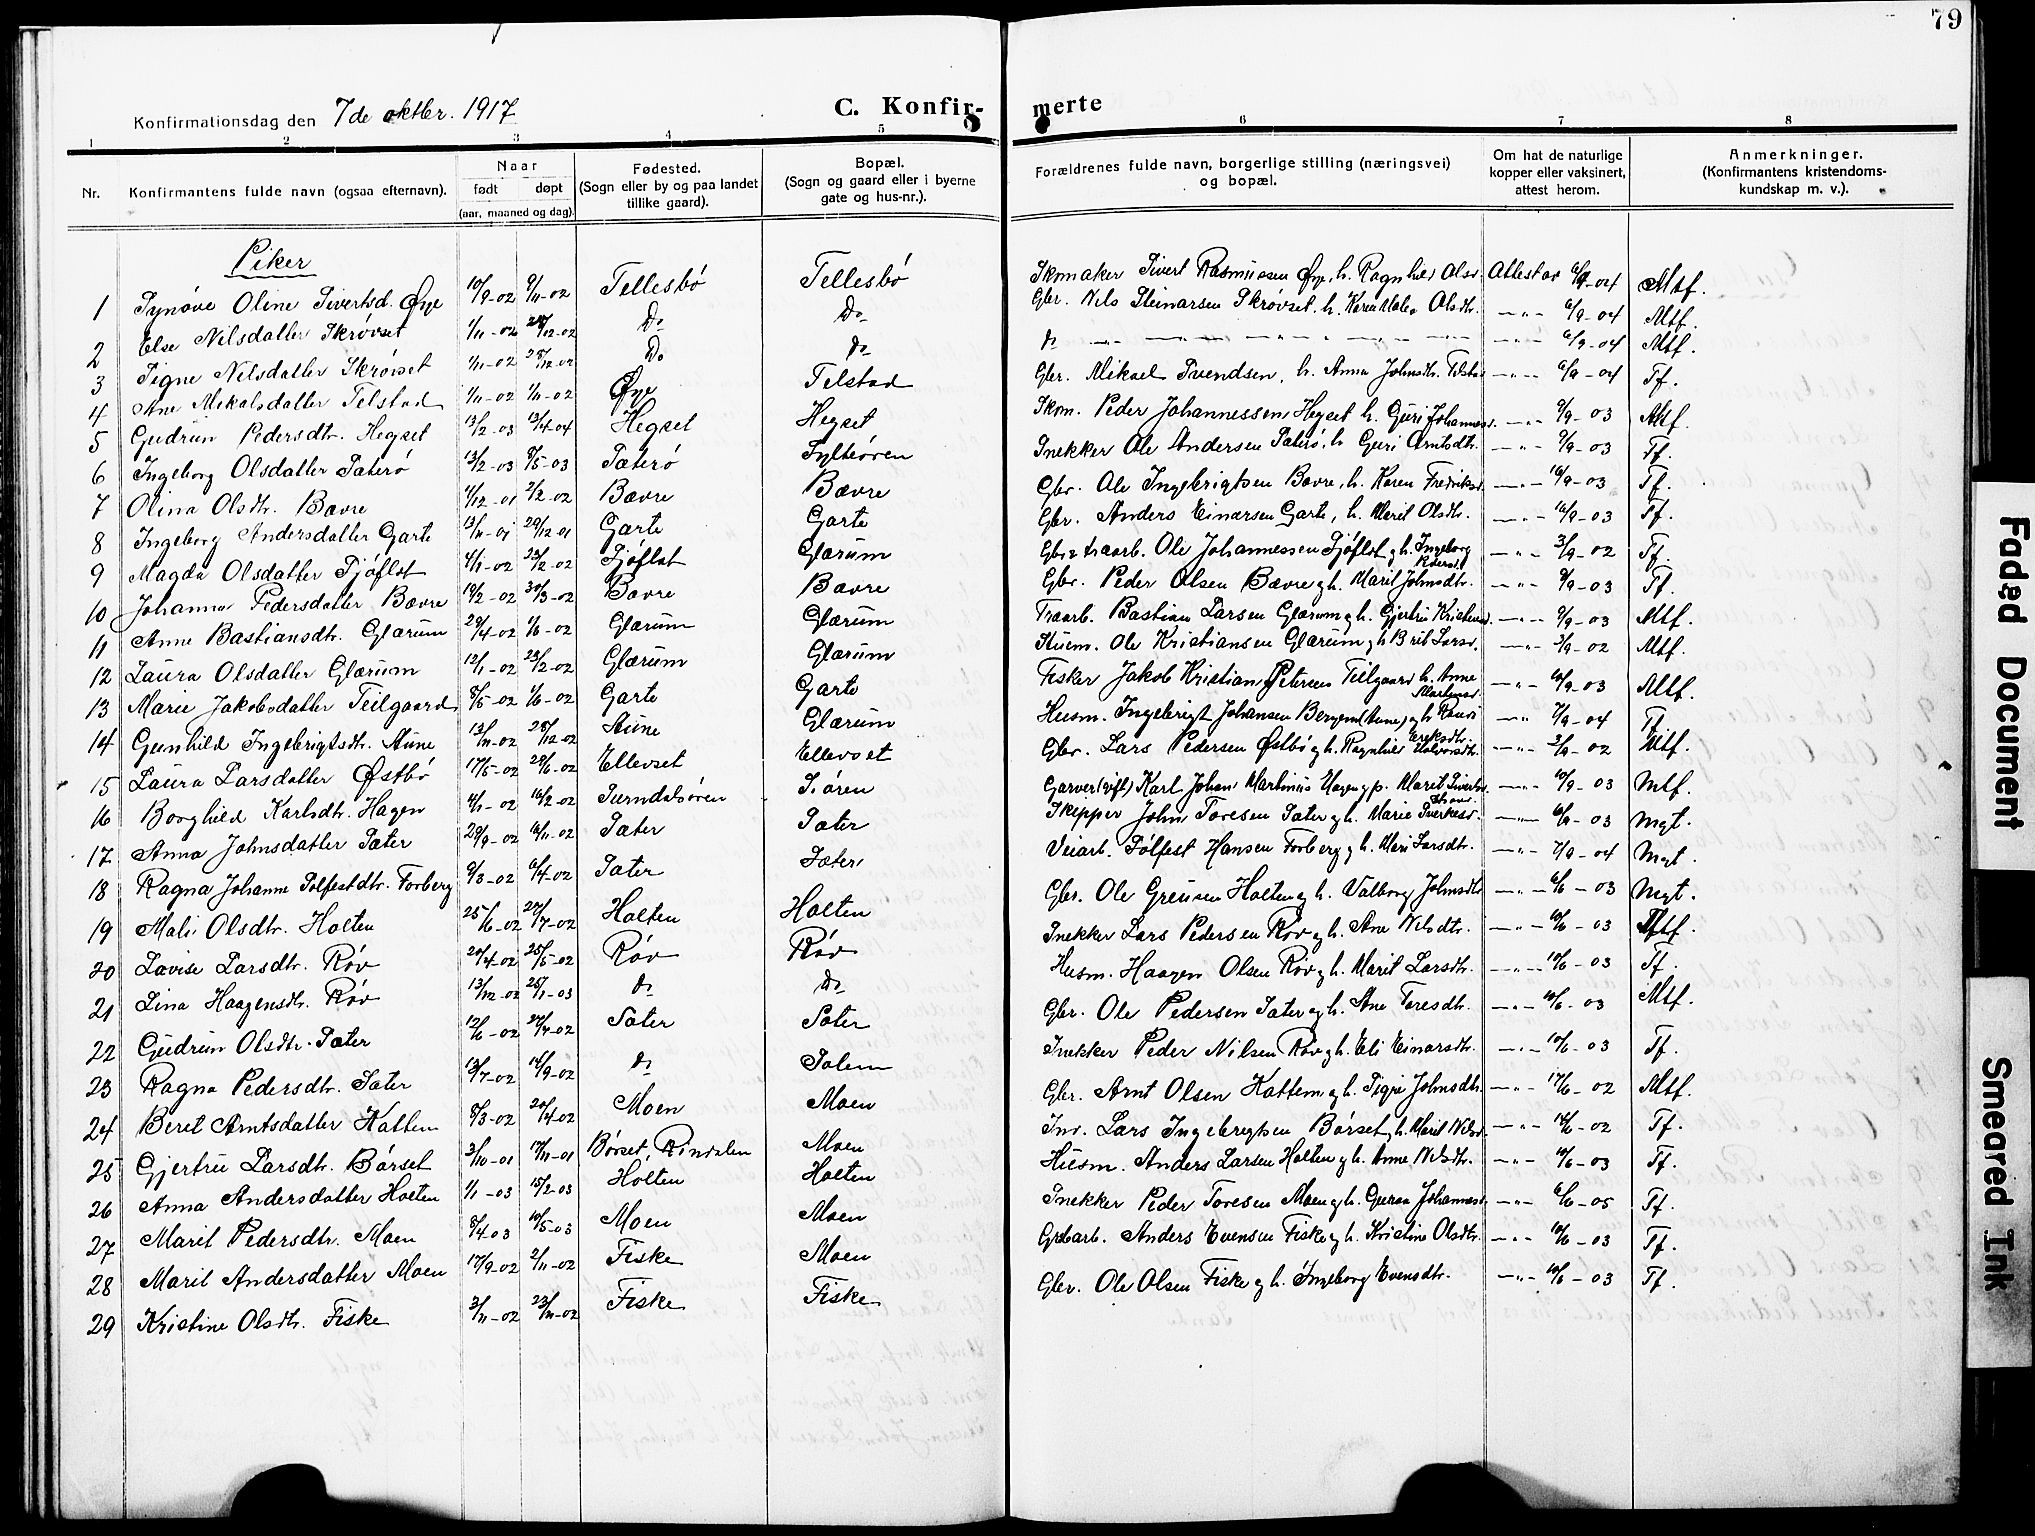 79
Konfirmationsdag den 7de oktbr. 1917 C. Konfir- merte
1 2 3 4 5 6 7 8
Nr. Konfirmantens fulde navn (ogsaa efternavn). Naar født døpt (aar, maaned og dag). Fødested. (Sogn eller by og paa landet tillike gaard). Bopæl. (Sogn og gaard eller i byerne gate og hus-nr.). Forældrenes fulde navn, borgerlige stilling (næringsvei) og bopæl. Om hat de naturlige kopper eller vaksinert, attest herom. Anmerkninger. (Konfirmantens kristendoms- kundskap m. v.).
Piker
1 Synøve Oline Sivertsd. Øye 10/9-02 9/11-02 Tellesbø Tellesbø Skomaker Sivert Rasmussen Øye, h. Ragnhild Olsd. Attest av 6/9-04 Mtf.
2 Else Nilsdatter Skrøvset 1/11-02 28/12-02 Do Do Gbr. Nils Steinarsen Skrøvset, h. Karen Malen Olsdtr. —"— 6/9-04 Mtf.
3 Signe Nilsdatter Skrøvset 1/11-02 28/12-02 Do Do do —"— 6/9-04 Mtf.
4 Ane Mikalsdatter Telstad 1/11-02 1/11-02 Øye Telstad Gbr. Mikael Svendsen, h. Anna Johnsdtr. Telstad —"— 6/9-04 Tf.
5 Gudrun Pedersdtr. Hegset 13/2-03 13/4-04 Hegset Hegset Skom. Peder Johannessen Hegset h. Guri Johannesd. —"— 9/9-03 Mtf.
6 Ingeborg Olsdatter Sæterø 13/2-03 8/5-03 Sæterø Sylteøren Snekker Ole Andersen Sæterø, h. Guri Arntsdtr. —"— 9/9-03 Tf.
7 Olina Olsdtr. Bævre 4/12-01 2/2-02 Bævre Bævre Gbr. Ole Ingebrigtsen Bævre, h. Karen Fredriksd. —"— 10/9-03 Tf.
8 Ingeborg Andersdatter Garte 13/11-01 29/12-01 Garte Garte Gbr. Anders Einarsen Garte, h. Marit Olsdtr. —"— 10/9-03 Tf.
9 Magda Olsdatter Sjøflot 4/1-02 23/2-02 Sjøflot Glærum Ole Johannessen Sjøflot og h. Ingeborg —"— 3/9-02 Tf.
10 Johanna Pedersdatter Bævre 10/2-02 30/3-02 Bævre Bævre Gbr. Peder Olsen Bævre og h. Marit Johnsdtr. —"— 9/9-03 Tf.
11 Anne Bastiansdtr. Glærum 29/4-02 1/6-02 Glærum Glærum Traarb. Bastian Larsen Glærum og h. Gjertru Kristensd. —"— 9/9-03 Mtf.
12 Laura Olsdatter Glærum 12/1-02 23/2-02 Glærum Glærum Ole Kristiansen Glærum og h. Brit Larsd. —"— 3/9-02 Mtf.
13 Marie Jakobsdatter Teilgaard 8/5-02 1/6-02 Garte Garte Fisker Jakob Kristian Petersen Teilgaard h. Anne —"— 10/9-03 Mtf.
14 Gunhild Ingebrigtsdtr. Stune 13/11-02 28/12-02 Stune Glærum Husm. Ingebrigt Johansen og h. Eriksdtr. —"— 7/9-04 Tf.
15 Laura Larsdatter Østbø 17/5-02 29/6-02 Ellevset Ellevset Gbr. Lars Pedersen Østbø og h. Ragnhild Halvorsdtr. —"— 3/9-02 Mtf.
16 Borghild Karlsdtr. Hagen 4/1-02 16/2-02 Surndalsøren Siøren Garver (gift) Karl Johan Martinus Hagen og p. Marit Sivertsd. —"— 10/9-03 Mtf.
17 Anna Johnsdatter Sæter 29/9-02 16/11-02 Sæter Sæter Skipper John Toresen Sæter og h. Marie —"— 6/9-03 Mgt.
18 Ragna Johanne Solfestdtr. Forberg 9/3-02 6/4-02 Sæter Sæter Veiarb. Solfest Hansen Forberg og h. Mari Larsdtr. —"— 7/9-04 Mgt.
19 Mali Olsdtr. Holten 25/6-02 27/7-02 Holten Holten Gbr. Ole Holten og h. Valborg Johnsdtr. —"— 6/6-03 Mgt.
20 Lovise Larsdtr. Røv 20/4-02 25/5-02 Røv Røv Snekker Lars Pedersen Røv og h. Ane Nilsdtr. —"— 10/6-03 Mtf.
21 Lina Haagensdtr. Røv 13/12-02 25/1-03 do Do Husm. Haagen Olsen Røv og h. Marit Larsdtr. —"— 10/6-03 Tf.
22 Gudrun Olsdtr. Sæter 12/6-02 27/7-02 Sæter Sæter Gbr. Ole Pedersen Sæter og h. Ane Toresdtr. —"— 10/6-03 Mtf.
23 Ragna Pedersdtr. Sæter 13/7-02 14/9-02 do Solem Snekker Peder Nilsen Røv og h. Eli Einarsdtr. —"— 10/6-03 Tf.
24 Beret Arntsdatter Kattem 8/3-02 20/4-02 Moen Moen Gbr. Arnt Olsen Kattem og h. Johnsdtr. —"— 17/6-02 Mtf.
25 Gjertru Larsdtr. Børset 3/10-01 17/11-01 Børset, Rindalen Moen Inv. Lars Ingebrigtsen Børset, h. Marit Nilsd. —"— 10/6-02 Tf.
26 Anna Andersdatter Holten 1/1-03 15/2-03 Holten Holten Husm. Anders Larsen Holten og h. Anne Nilsdtr. —"— 10/6-03 Tf.
27 Marit Pedersdtr. Moen 8/4-03 10/5-03 Moen Moen Snekker Peder Toresen Moen og h. Johannesd. —"— 6/6-05 Tf.
28 Marit Andersdatter Moen 17/9-02 2/11-02 Fiske Moen Anders Evensen Fiske og h. Kristine Olsdtr. —"— 10/6-03 Tf.
29 Kristine Olsdtr. Fiske 3/11-02 23/11-02 Fiske Fiske Gbr. Ole Olsen Fiske og h. Ingeborg Evensdtr. —"— 10/6-03 Tf.
Faded Document
Smeared Ink